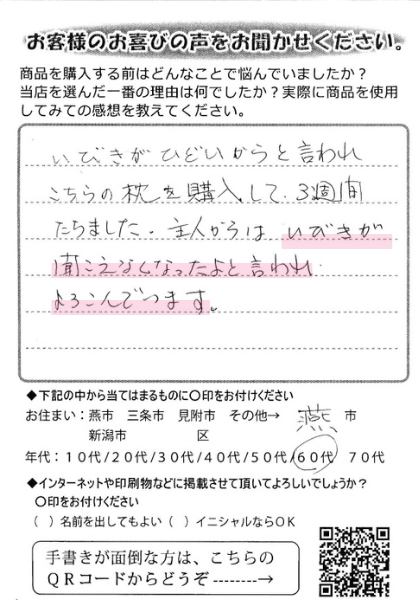 お客様のお喜びの声をお聞かせください。
商品を購入する前はどんなことで悩んでいましたか？
当店を選んだ一番の理由は何でしたか？実際に商品を使用
してみての感想を教えてください。
いびきがひどいからと言われ
こちらの枕を購入して、3週間
たちました。主人からは いびきが
聞こえなくなったよと言われ
よろこんでつます。
◆下記の中から当てはまるものに〇印をお付けください
お住まい：燕市 三条市 見附市 その他→ 燕 市
新潟市 区
年代：１０代/２０代/３０代/４０代/５０代/６０代 ７０代
◆インターネットや印刷物などに掲載させて頂いてよろしいでしょうか？
〇印をお付けください
（ ）名前を出してもよい（ ）イニシャルならＯＫ
手書きが面倒な方は、こちらの
ＱＲコードからどうぞ-------->